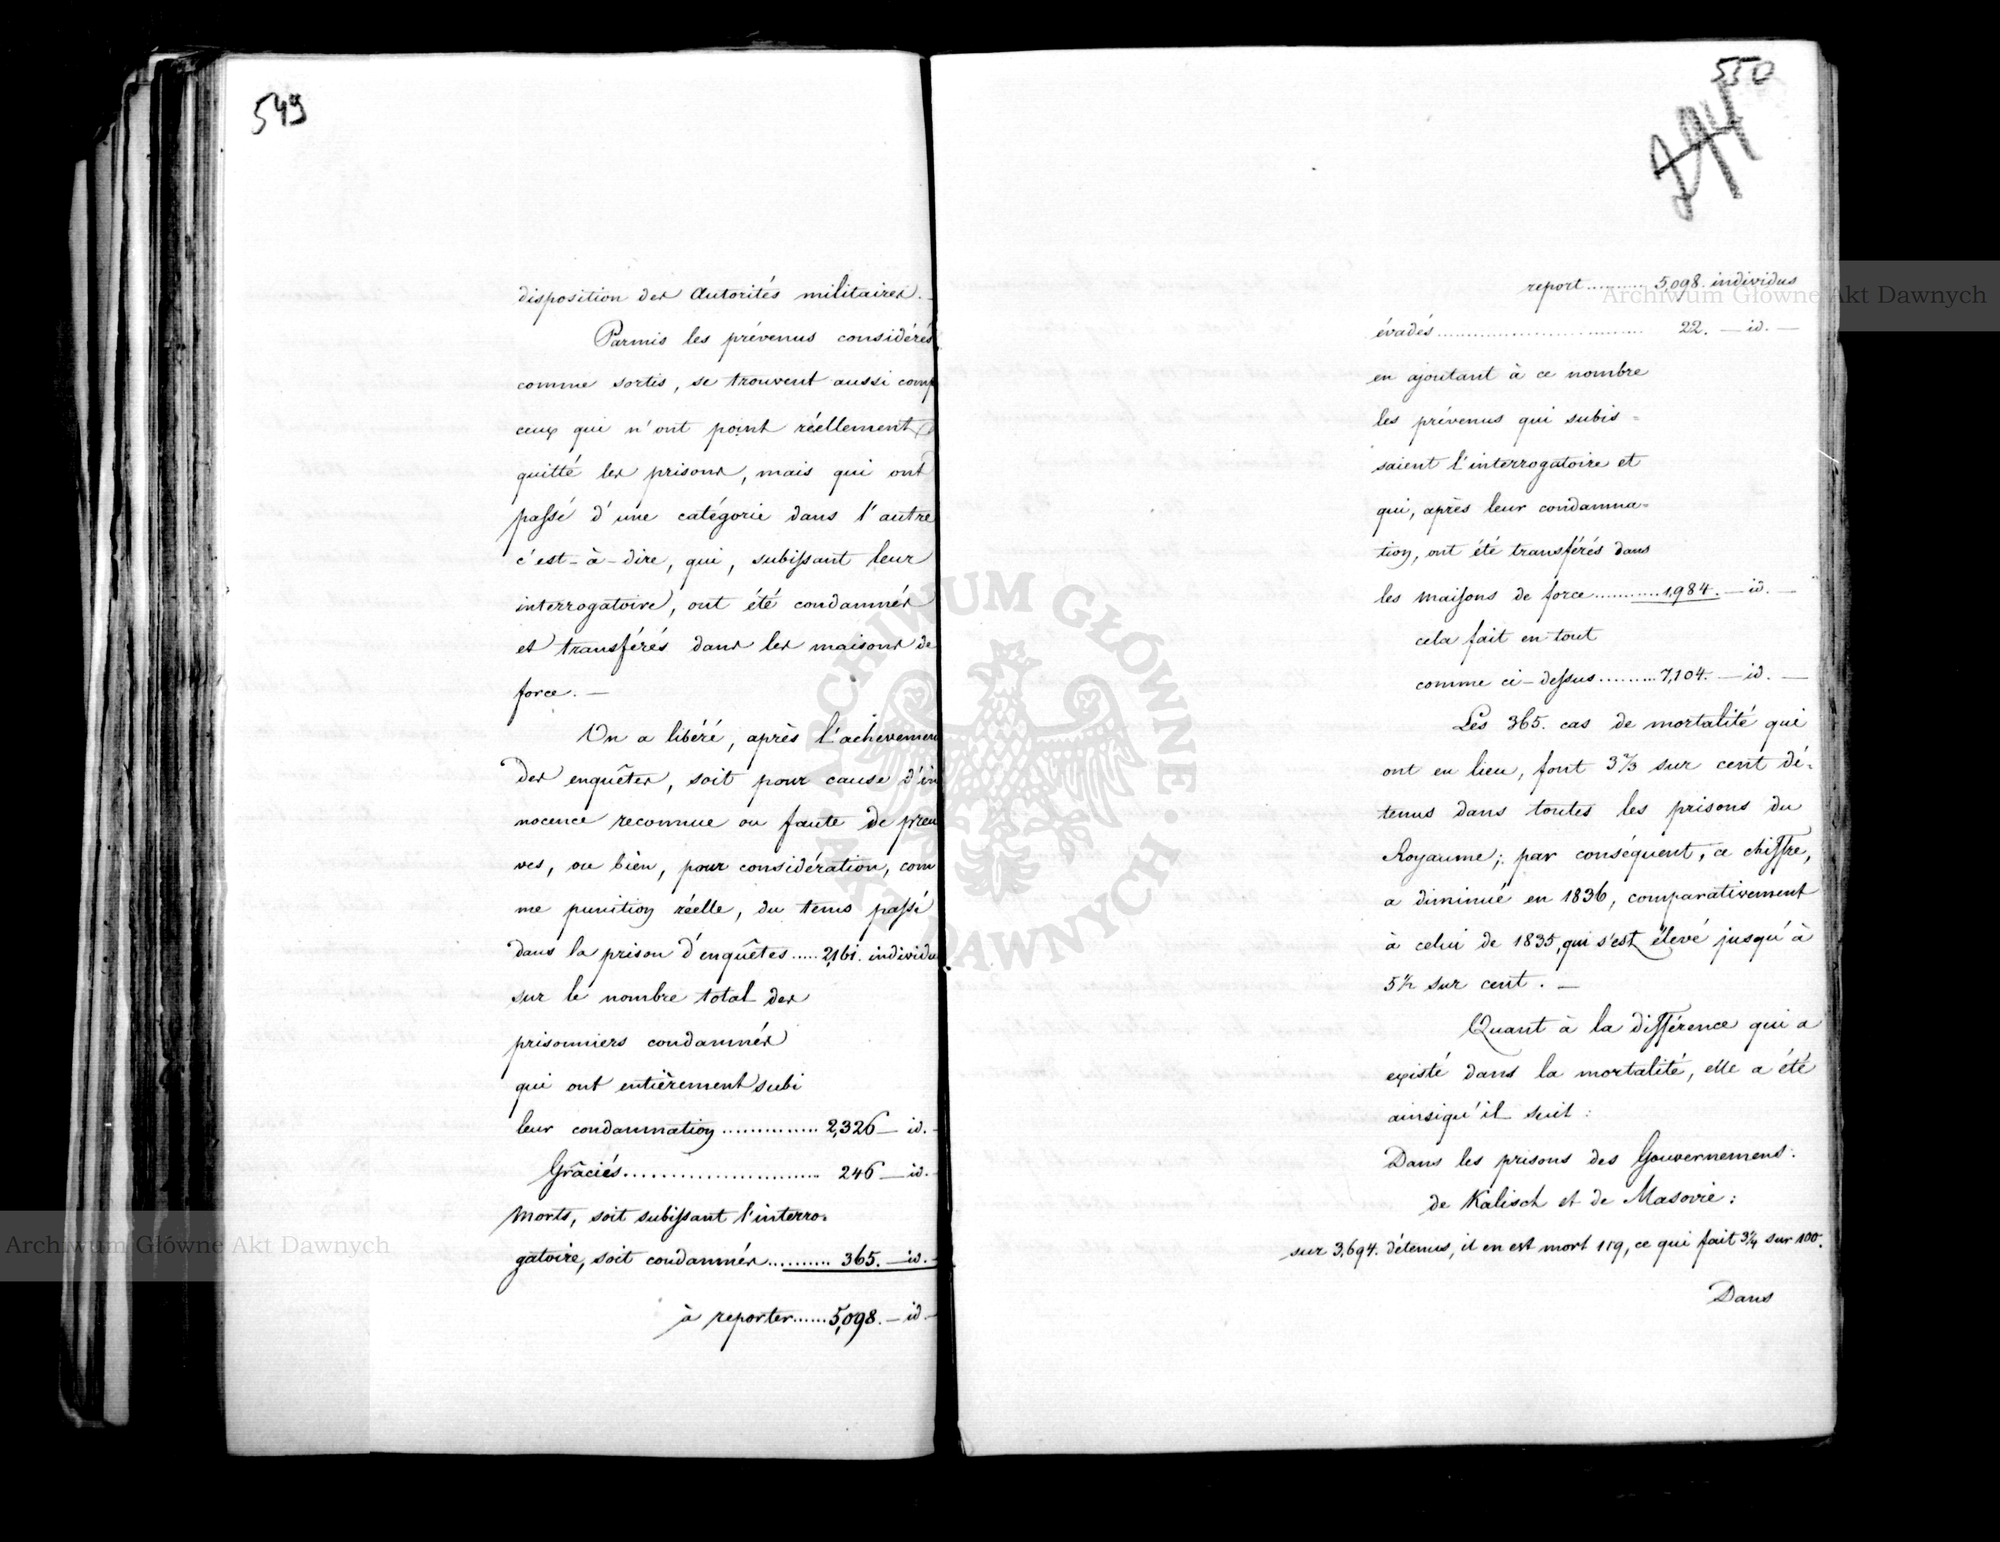 549
disposition des Autorités militaires. —
Parmis les prévenus considérés
comme sortis, se trouvent aussi comp
ceux qui n'ont point réellement
quitté les prisons, mais qui ont
passé d'une catégorie dans l'autre
c'est-à-dire, qui, subissant leur
interrogatoire, ont été condamnés
et transférés dans les maisons de
force. —
On a libéré, après l'achevemen
des enquêtes, soit pour cause d'in
nocence reconnue ou faute de preu
ves, ou bien, pour considération, com
me punition réelle, du tems passé
dans la prison d'enquêtes ..... 2,161. individu
sur le nombre total des
prisonniers condamnés
qui ont entièrement subi
leur condamnation .............. 2,326 — id. -
Grâciés........................ 246 — id. -
Morts, soit subissant l'interro=
gatoire, soit condamnés .......... 365. — id. -
à reporter ...... 5,098. — id. -
550
294
report .......... 5,098. individus
évadés ................................ 22. — id. —
en ajoutant à ce nombre
les prévenus qui subis =
saient l'interrogatoire et
qui, après leur condamna=
tion, ont été transférés dans
les maisons de force ............ 1,984. — id. —
cela fait en tout
comme ci-dessus ......... 7,104. — id. —
Les 365. cas de mortalité qui
ont eu lieu, font 3 2/3 sur cent dé=
tenus dans toutes les prisons du
Royaume; par conséquent, ce chiffre,
a diminué en 1836, comparativement
à celui de 1835, qui s'est élevé jusqu'à
5 1/2 sur cent. —
Quant à la différence qui a
existé dans la mortalité, elle a été
ainsiqu'il suit :
Dans les prisons des Gouvernemens.
de Kalisch et de Masovie :
sur 3,694. détenus, il en est mort 119, ce qui fait 3 1/4 sur 100.
Dans
Archiwum Główne Akt Dawnych
Archiwum Główne Akt Dawnych
ARCHIWUM GŁÓWNE · AKT DAWNYCH ·